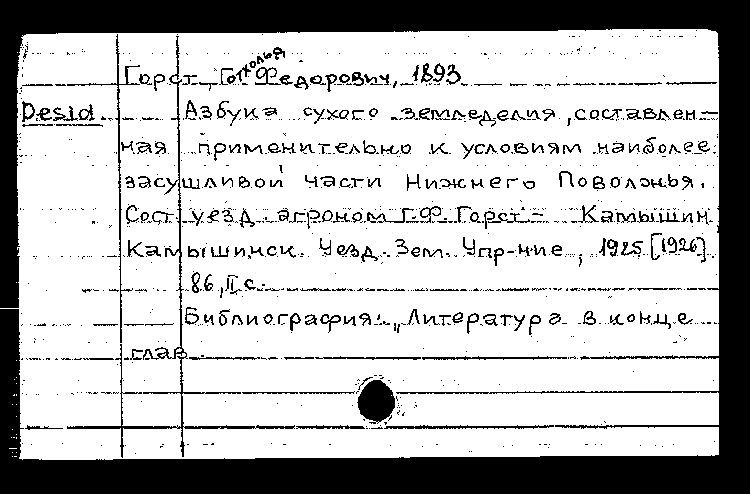 Горст, Готхольд Федорович, 1893
Desid. Азбука сухого земледелия, составлен-
ная применительно к условиям наиболее
засушливой части Нижнего Поволжья.
Сост. уезд. агроном Г.Ф. Горст.- Камышин,
Камышинск. Уезд. Зем. Упр-ние, 1925 [1926].
86, II с.
Библиография: „Литература в конце
глав.